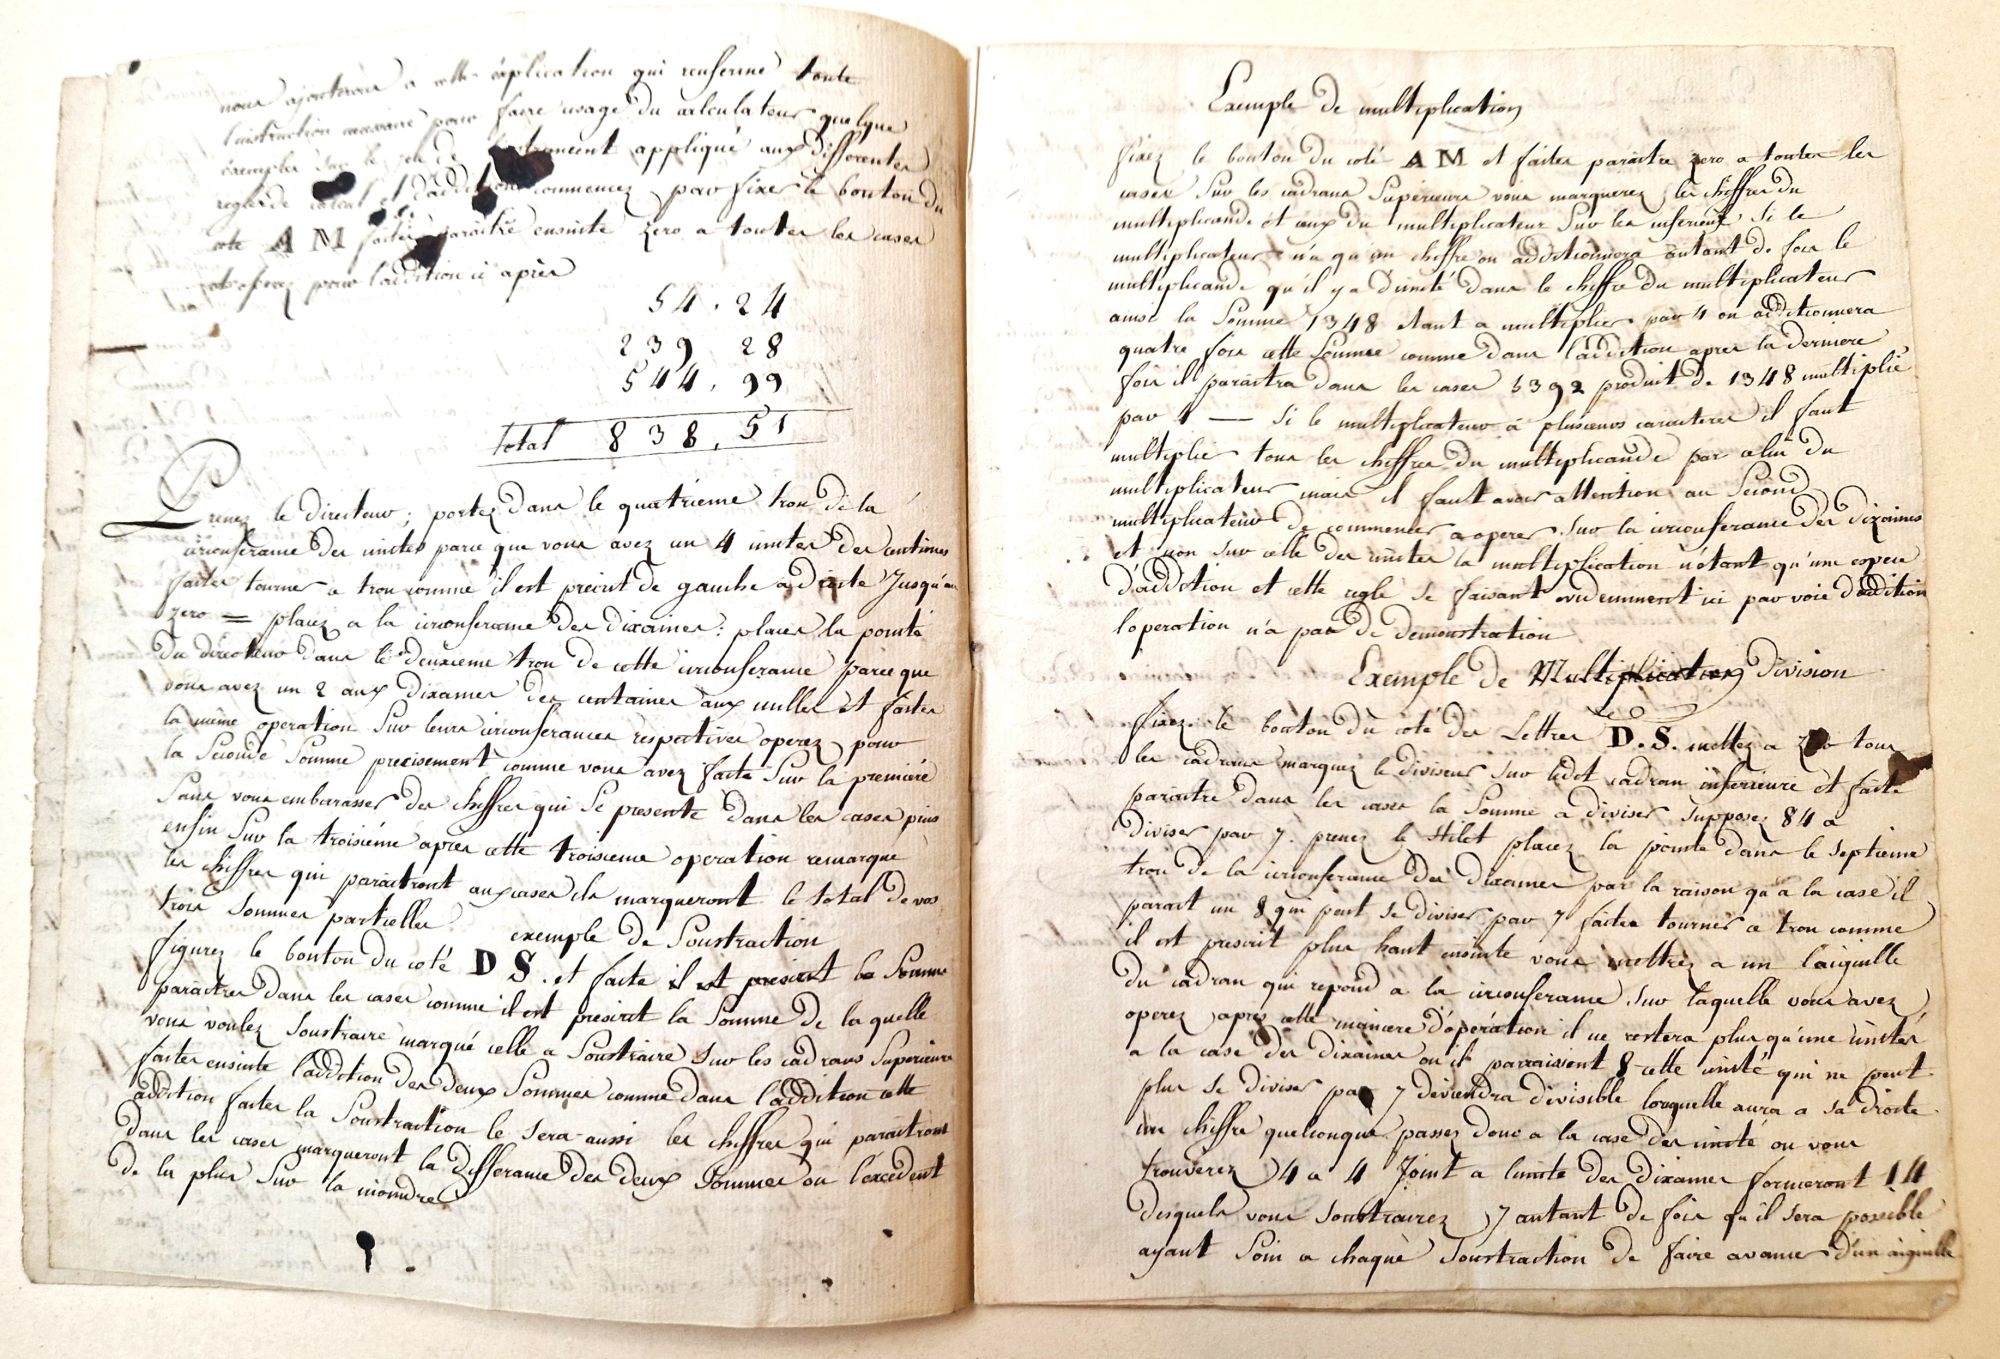 nous ajouterons a cette éxplication qui renferme toute
l'instruction pour faire usage du calculateur quelque
éxemples sur le jeu de appliqué aux differentes
regles de calcul et commencez par fixer le bouton du
coté AM faites paraitre ensuite zero a toutes les cases
et oprerez pour l'addition ci après
54.24
239 28
544.99
total 838.51
Prenez le directeur; portez dans le quatriéme trou de la
circonferance des unités parce que vous avez un 4 unités des centimes
faites tourner ce trou comme il est précrit de gauche a droite jusqu'au
zero = placez a la circonferance des dixaines: places la pointe
du directeur dans le deuxieme trou de cette circonferance parce que
vous avez un 2 aux dixaines des centaines aux milles et faites
la même operation sur leurs circonferances respectives operez pour
la seconde somme precisement comme vous avez faite sur la premiére
sans vous embarasser des chiffres qui se presente dans les cases puis
enfin sur la troisiéme apres cette troisieme operation remarqué
les chiffres qui paraitront aux cases ils marqueront le total de vos
trois sommes partielles
exemple de Soustraction
figurez le bouton du coté DS. et faite il est préscrit la Somme
paraitres dans les cases comme il est préscrit la Somme de la quelle
vous voulez soustraire marqué celle a Soustraire sur les cadrans Superieurs
faites ensuite l'addition des deux sommes comme dans l'addition cette
addition faites la Soustraction le sera aussi les chiffres qui paraitront
dans les cases marqueront la differance des deux Sommes ou l'excédent
de la plus sur la moindre
Exemple de multiplication
fixez le bouton du coté AM et faites paraitre zero a toutes les
cases sur les cadrans Superieurs vous marquerez les chiffres du
multiplicande et ceux du multiplicateur sur les inferieurs si le
multiplicateur n'a qu'un chiffre on additionnera autant de fois le
multiplicande qu'il y a d'unité dans le chiffre du multiplicateur
ainsi la somme 1348 etant a multiplier par 4 on additionnera
quatre fois cette Somme comme dans l'addition apres la derniere
fois il paraitra dans les cases 5392 produit de 1348 multiplié
par 4 — si le multiplicateur à plusieurs caracteres il faut
multiplier tous les chiffres du multiplicande par celui du
multiplicateur mais il faut avoir attention au Second
multiplicateur de commencer a operer sur la circonferance des dixaines
et non sur celle des unités la multiplication n'étant qu'une espece
d'addition et cette regle se faisant evidemment ici par voie d'addition
l'operation n'a pas de demonstration
Exemple de Multiplication Division
fixez le bouton du coté des Lettres D.S. mettez a zero tous
les cadrans marquez le diviseur sur ledit cadran inferieure et faite
paraitre dans les cases la Somme a diviser supposez 84 a
diviser par 7. prenez le stilet placez la pointe dans le septieme
trou de la circonferance des dixaines par la raison qu'a la case il
parait un 8 qui peut se diviser par 7 faites tourner ce trou comme
il est prescrit plus haut ensuite vous mettrez a un l'aiguille
du cadran qui repond a la circonferance sur laquelle vous avez
operez apres cette maniere d'opération il ne restera plus qu'une unités
a la case des dixaines ou il parraissent 8 cette unité qui ne peut
plus se diviser par 7 deviendra divisible lorquelle aura a sa droite
un chiffre quelconque passez donc a la case des unité ou vous
trouverez 4 ce 4 Joint a l'unité des dixaines formeront 14
desquels vous soustrairez 7 autant de fois qu'il sera possible
ayant soin a chaque soustraction de faire avancer d'un aiguille